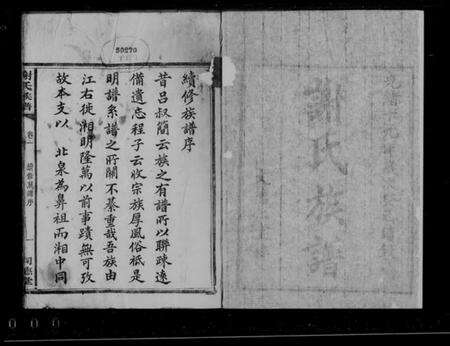 謝氏族譜
50270
續修族譜序
昔呂叔簡云族之有譜所以聯疎遠
備遺忘程子云收宗族厚風俗秪是
明譜系譜之所關不綦重哉吾族由
江右徙湘明隆萬以前事蹟無可攷
故本支以 北泉為鼻祖而湘中同
謝氏族譜
卷一
續修族譜序
一